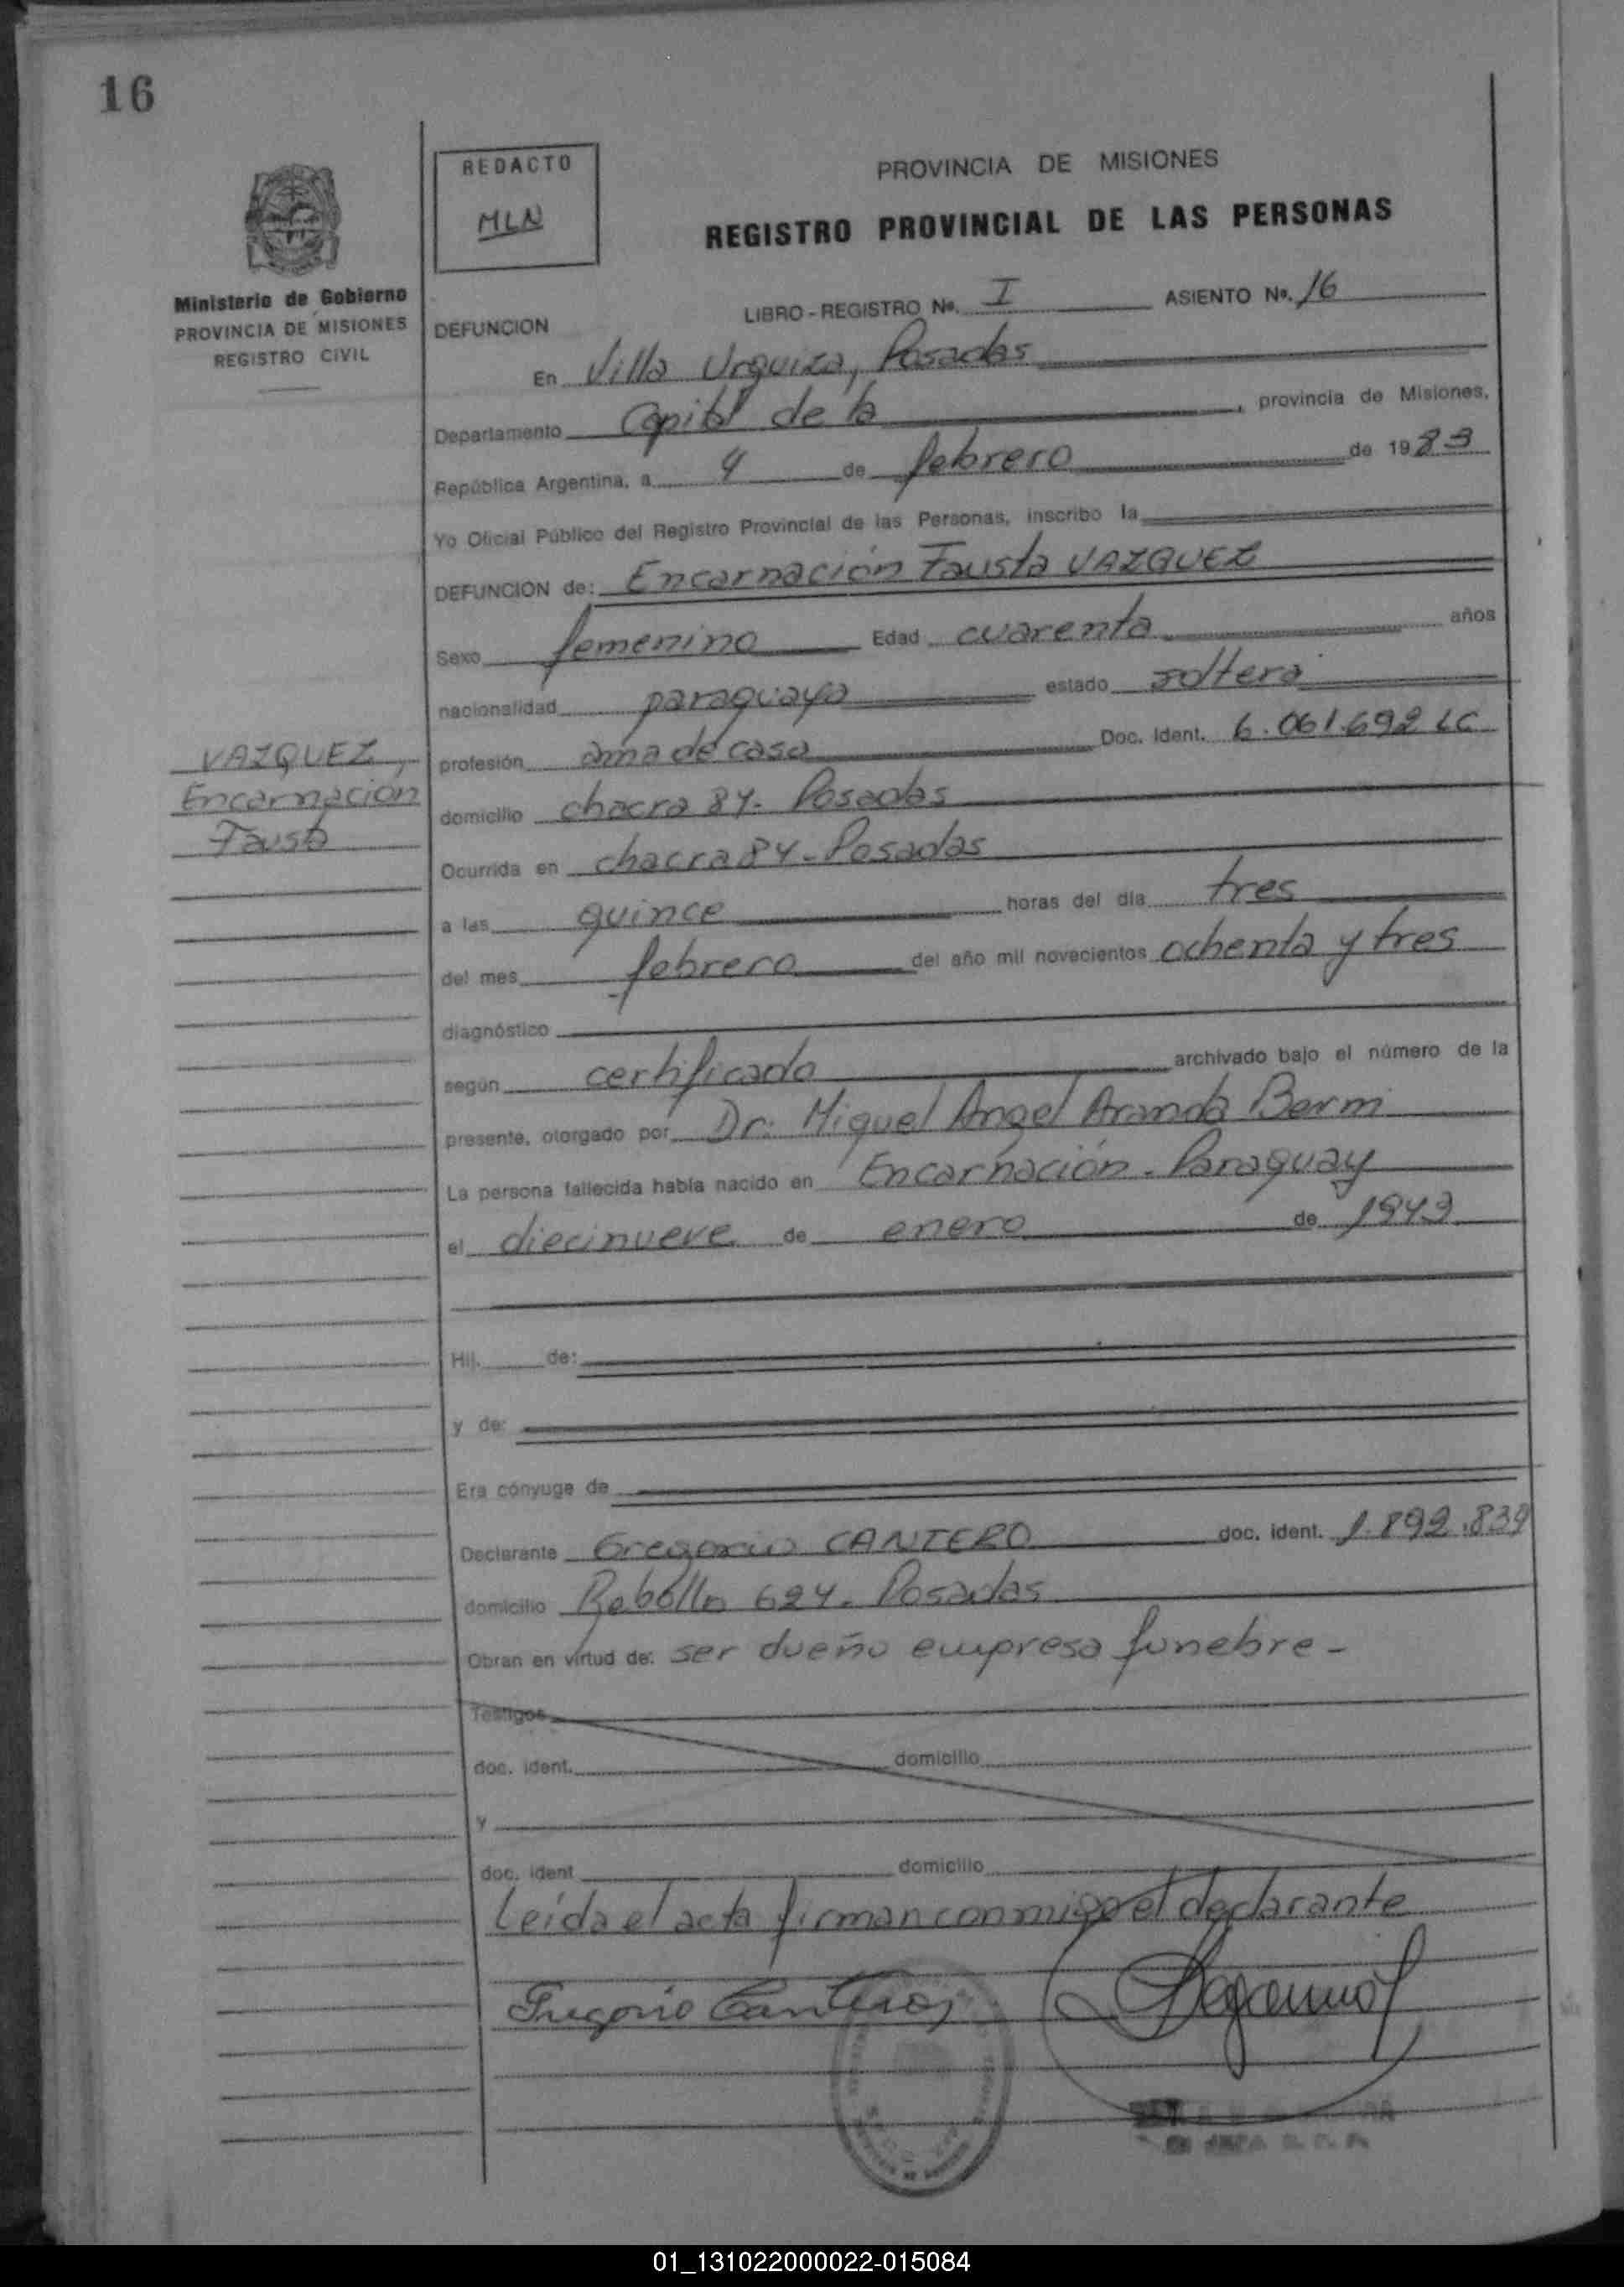 16
REDACTO
MLN
PROVINCIA DE MISIONES
REGISTRO PROVINCIAL DE LAS PERSONAS
Ministerio de Gobierno
PROVINCIA DE MISIONES
REGISTRO CIVIL
LIBRO - REGISTRO No. I ASIENTO No. 16
DEFUNCION
En Villa Urquiza, Posadas
Departamento Capital de la , provincia de Misiones,
República Argentina, a 4 de febrero de 1983
Yo Oficial Público del Registro Provincial de las Personas, inscribo la
DEFUNCION de: Encarnación Fausta VAZQUEZ
Sexo femenino Edad cuarenta años
nacionalidad paraguaya estado soltera
profesión ama de casa Doc. Ident. 6.061.692 LC
VAZQUEZ,
Encarnación
Fausta
domicilio chacra 84- Posadas
Ocurrida en chacra 84- Posadas
a las quince horas del día tres
del mes febrero del año mil novecientos ochenta y tres
diagnóstico
según certificado archivado bajo el número de la
presente, otorgado por Dr. Miguel Angel Aranda Berm
La persona fallecida había nacido en Encarnación- Paraguay
el diecinueve de enero de 1943
Hij. de:
y de:
Era cónyuge de
Declarante Gregorio CANTERO doc. ident. 1.892.839
domicilio Rebollo 624- Posadas
Obran en virtud de: ser dueño empresa funebre-
Testigos
doc. ident. domicilio
y
doc. ident domicilio
Leída el acta firman conmigo el declarante
Gregorio Cantero
01_131022000022-015084